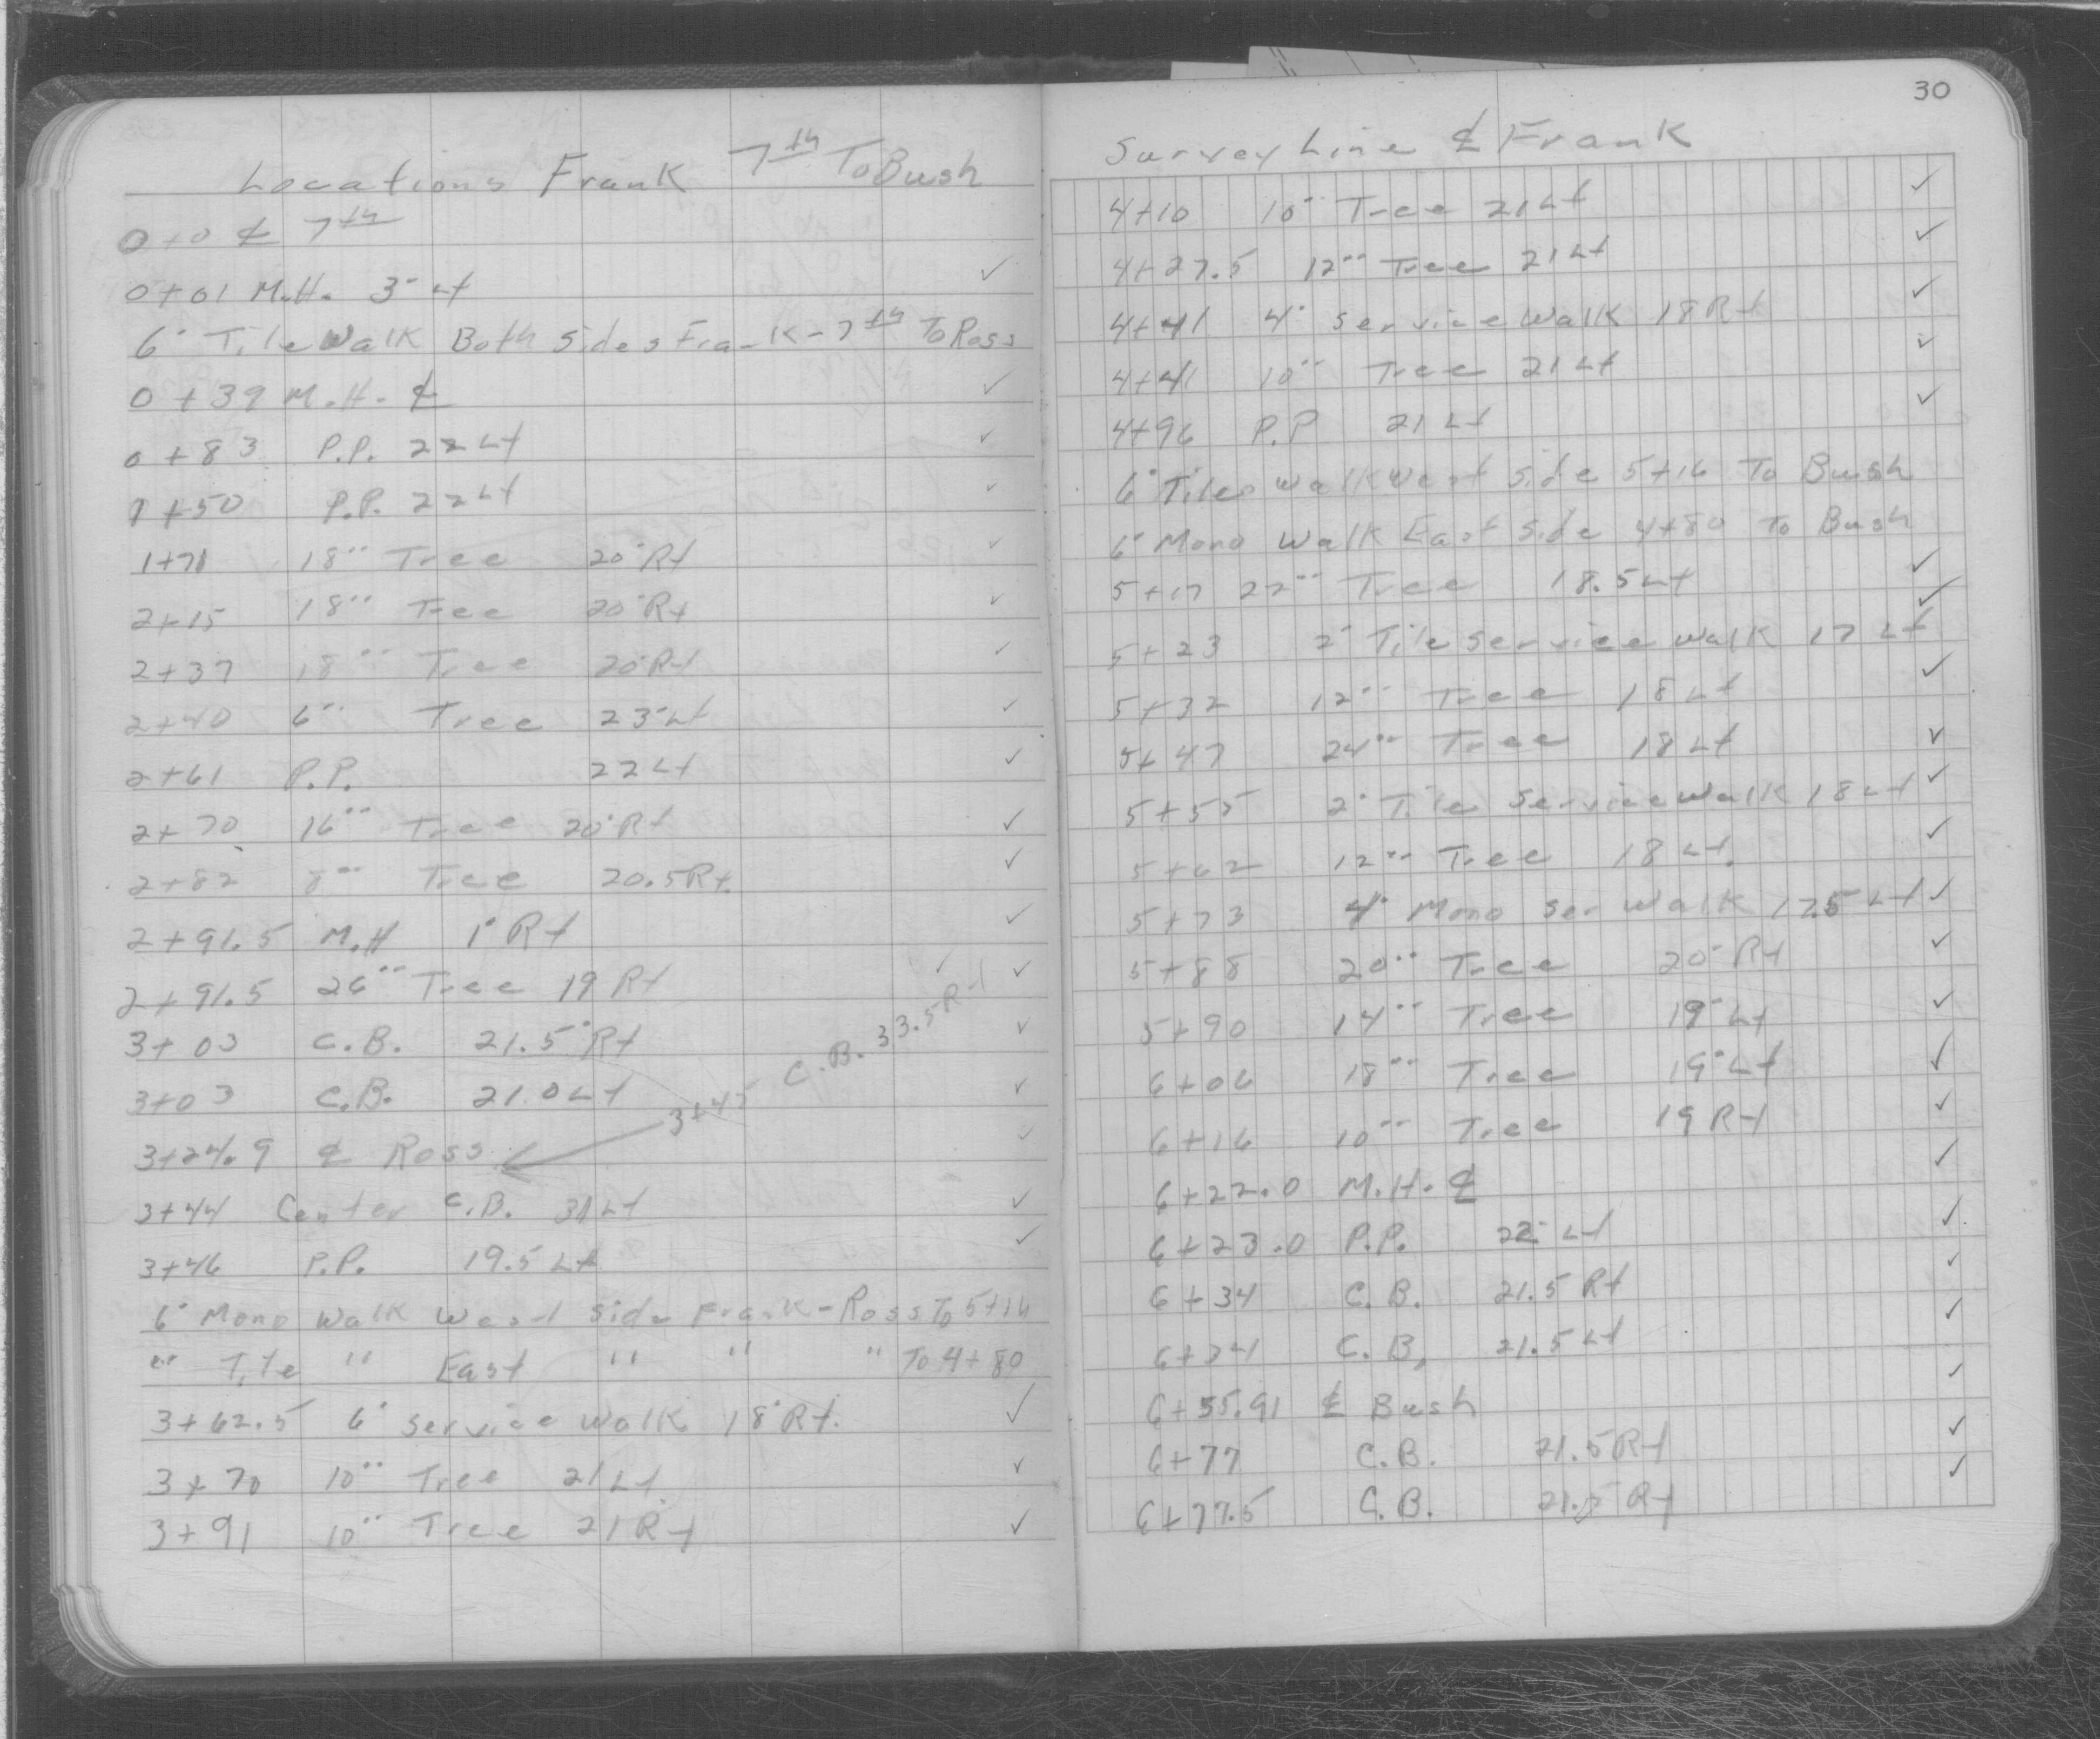 Locations Frank 7th To Bush
0+0 ℄ 7th
0+01 M.H. 3' Lt ✓
6' Tile Walk Both Sides Frank - 7th To Ross
0+39 M.H. ℄ ✓
0+83 P.P. 22 Lt ✓
1+50 P.P. 22 Lt ✓
1+71 18'' Tree 20' Rt ✓
2+15 18'' Tree 20' Rt ✓
2+37 18'' Tree 20' Rt ✓
2+40 6'' Tree 23' Lt ✓
2+61 P.P. 22 Lt ✓
2+70 16'' Tree 20' Rt ✓
2+82 8'' Tree 20.5 Rt. ✓
2+91.5 M.H 1' Rt ✓
2+91.5 26'' Tree 19 Rt ✓
3+03 C.B. 21.5' Rt ✓
3+03 C.B. 21.0 Lt ✓
3+45 C.B. 33.5 Rt ✓
3+24.9 ℄ Ross ✓
3+44 Center C.B. 31 Lt ✓
3+46 P.P. 19.5 Lt ✓
6' Mono Walk West Side Frank - Ross To 5+16
" Tile " East " " " To 4+80
3+62.5 6' Service Walk 18' Rt. ✓
3+70 10'' Tree 21 Lt ✓
3+91 10'' Tree 21 Rt ✓
30
Survey Line ℄ Frank
4+10 10'' Tree 21 Lt ✓
4+27.5 12'' Tree 21 Lt ✓
4+41 4' Service Walk 18 Rt ✓
4+41 10'' Tree 21 Lt ✓
4+96 P.P 21 Lt ✓
6' Tile Walk West Side 5+16 To Bush
6' Mono Walk East Side 4+80 To Bush
5+17 22'' Tree 18.5 Lt ✓
5+23 2' Tile Service Walk 17 Lt ✓
5+32 12'' Tree 18 Lt ✓
5+47 24'' Tree 18 Lt ✓
5+55 2' Tile Service Walk 18 Lt ✓
5+62 12'' Tree 18 Lt. ✓
5+73 4' Mono Ser Walk 17.5 Lt ✓
5+88 20'' Tree 20' Rt ✓
5+90 14'' Tree 19' Lt ✓
6+06 18'' Tree 19' Lt ✓
6+16 10'' Tree 19 Rt ✓
6+22.0 M.H. ℄ ✓
6+23.0 P.P. 22' Lt ✓
6+34 C.B. 21.5 Rt ✓
6+34 C.B. 21.5 Lt ✓
6+55.91 ℄ Bush ✓
6+77 C.B. 21.5 Rt ✓
6+77.5 C.B. 21.5 Rt ✓